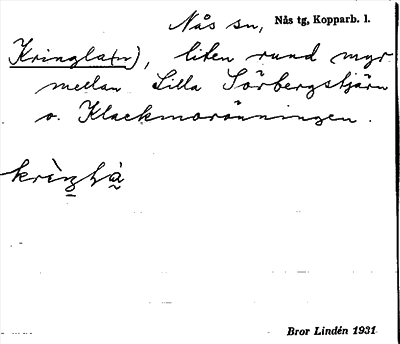 Nås sn, Nås tg, Kopparb. l.
Kringla(n), liten rund myr
mellan Lilla Sörbergstjärn
o. Klackmoränningen.
Bror Lindén 1931